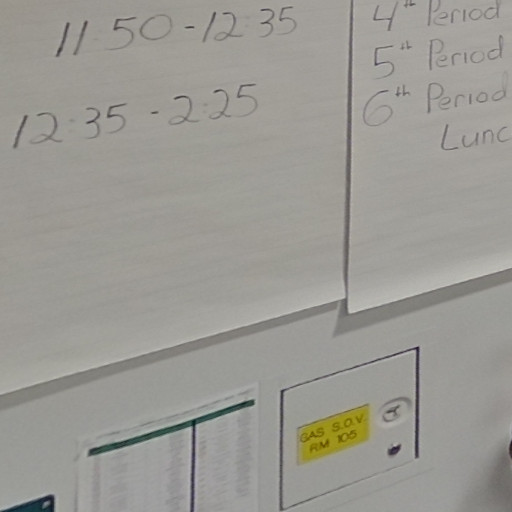 11:50 - 12:35
12:35 - 2:25
4th Period
5th Period
6th Period
Lunc
GAS S.O.V.
RM 105